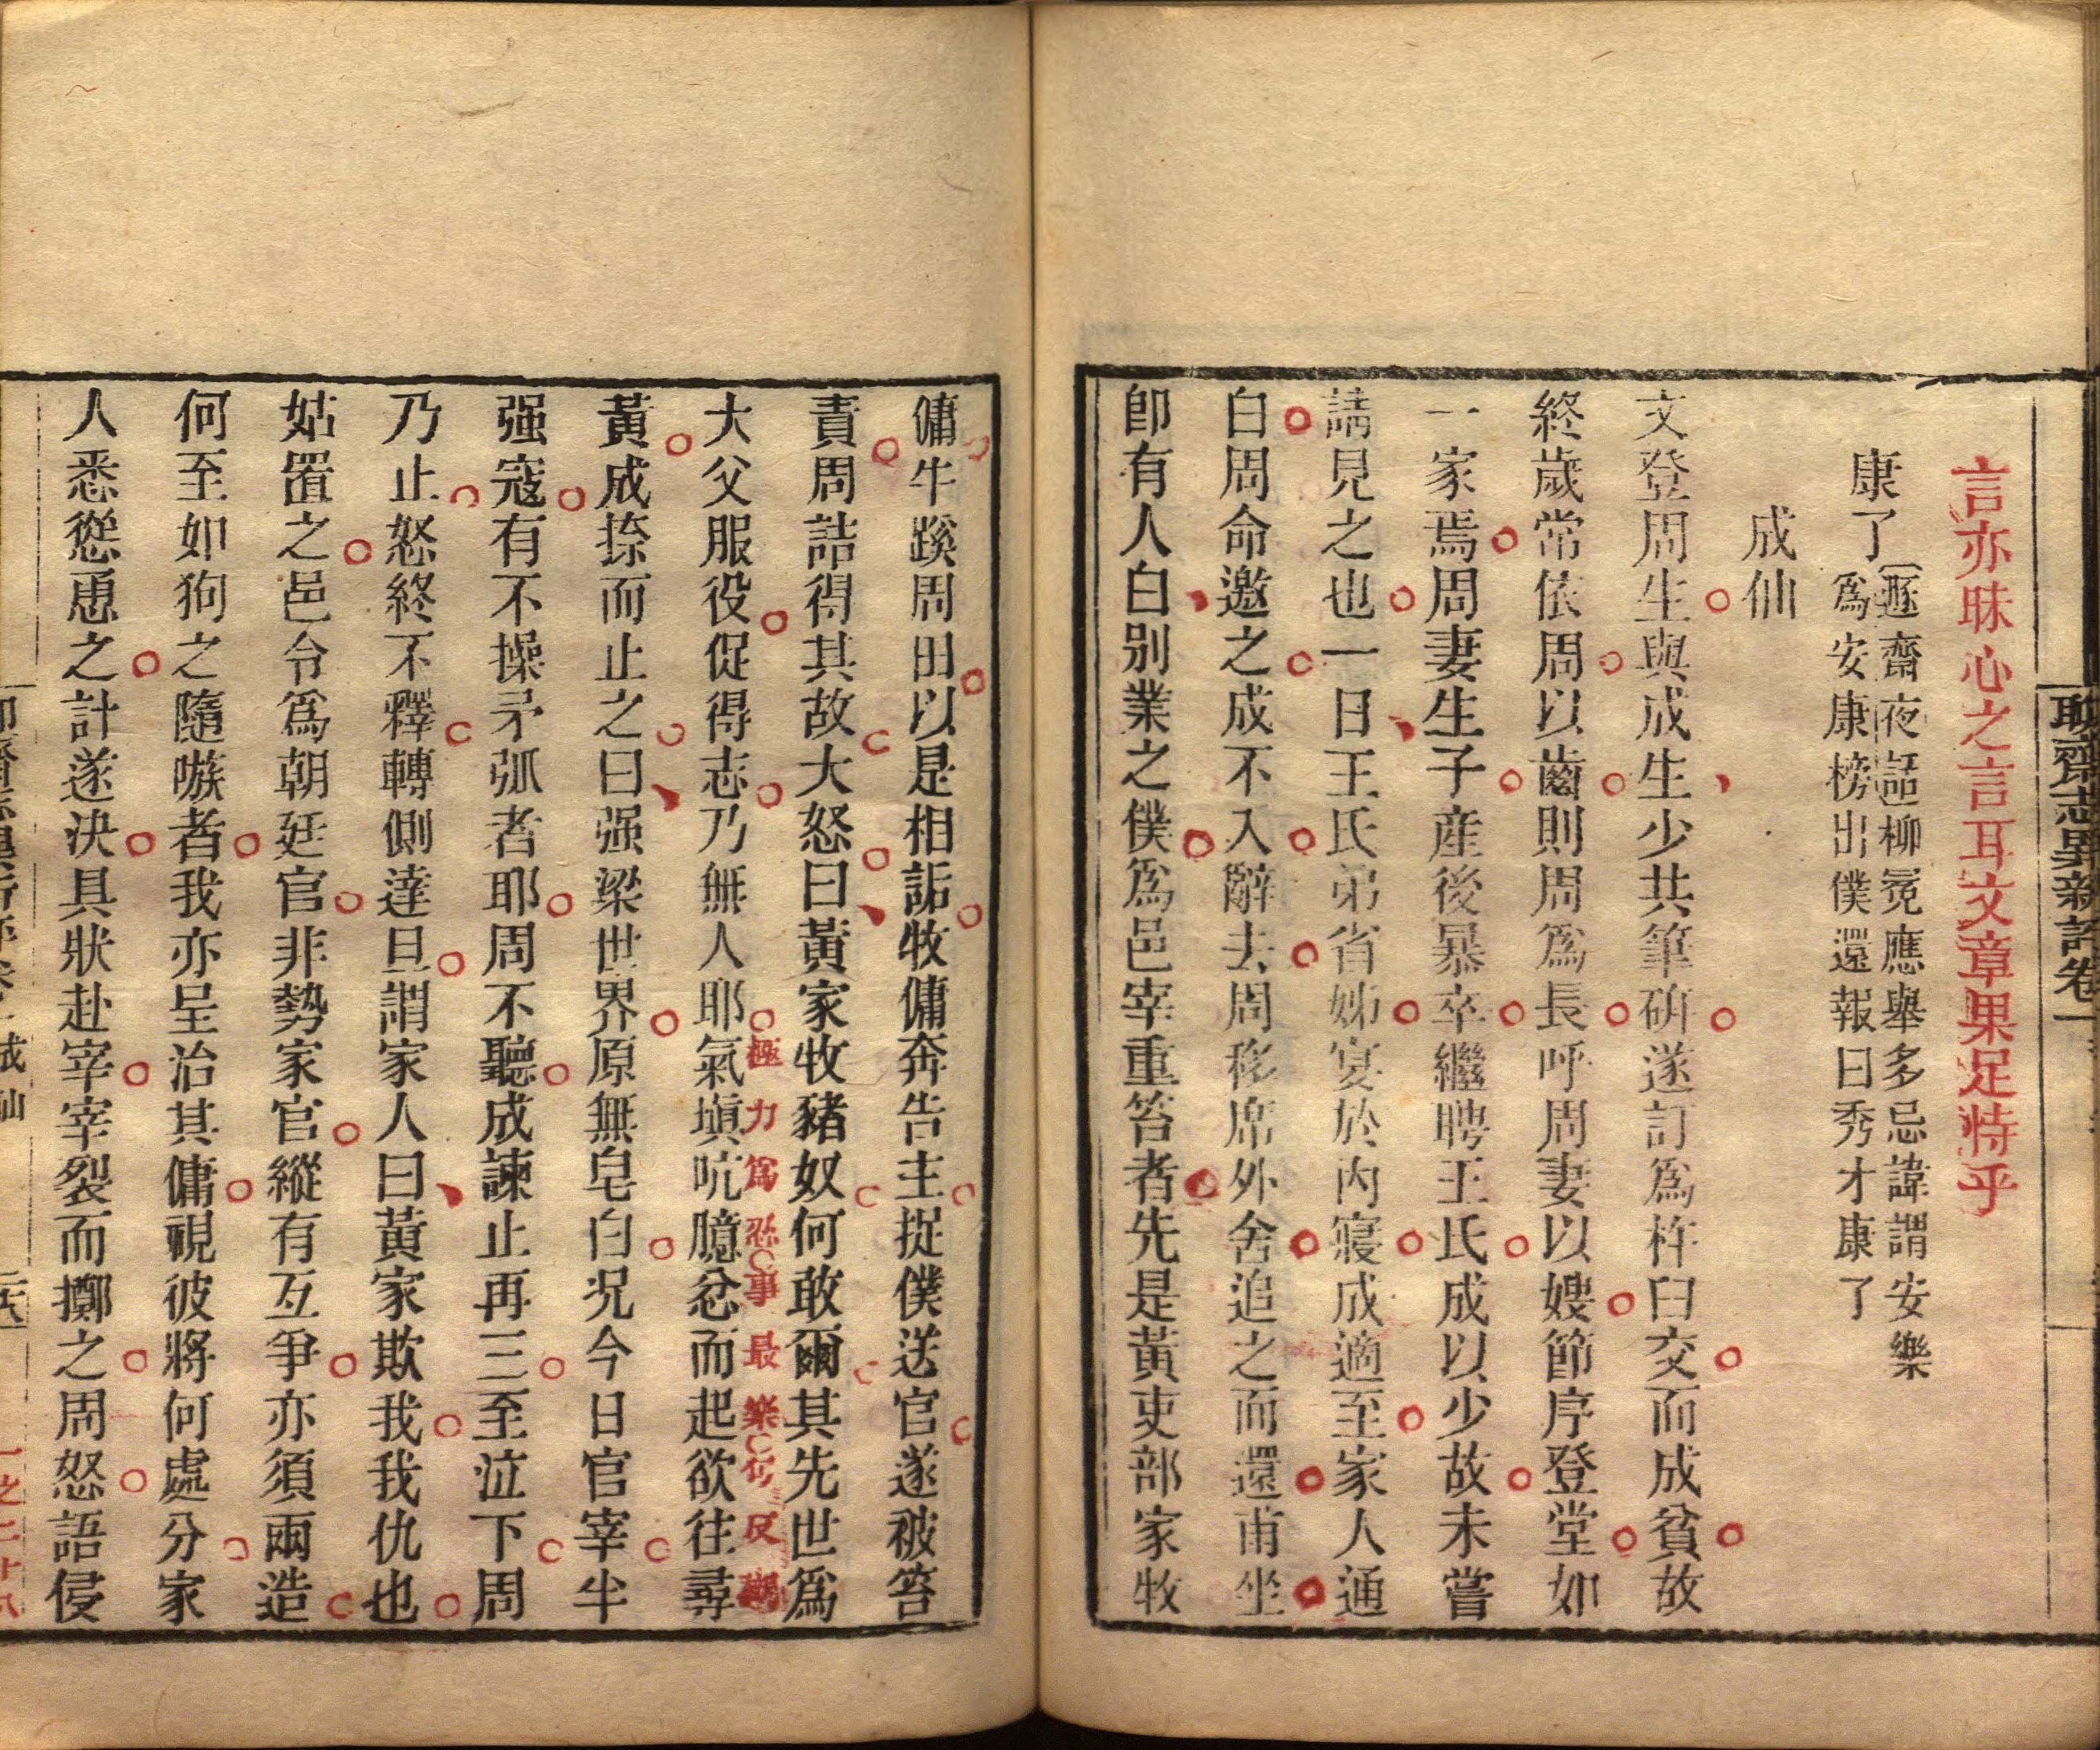 聊齋志異新評卷一
言亦昧心之言耳文章果足恃乎
康了
遯齋夜話柳冕應舉多忌諱謂安樂
爲安康榜出僕還報曰秀才康了
成仙
文登周生與成生少共筆硏遂訂爲杵臼交而成貧故
終歲常依周以齒則周爲長呼周妻以嫂節序登堂如
一家焉周妻生子產後暴卒繼聘王氏成以少故未嘗
請見之也一日王氏弟省姊宴於內寢成適至家人通
白周命邀之成不入辭去周移席外舍追之而還甫坐
卽有人白別業之僕爲邑宰重笞者先是黃吏部家牧
傭牛蹊周田以是相詬牧傭奔告主捉僕送官遂被笞
責周詰得其故大怒曰黃家牧豬奴何敢爾其先世爲
大父服役促得志乃無人耶氣塡吭臆忿而起欲往尋
極力爲忍事最樂作反襯
黃成捺而止之曰强梁世界原無皂白况今日官宰半
强寇有不操矛弧者耶周不聽成諫止再三至泣下周
乃止怒終不釋轉側達旦謂家人曰黃家欺我我仇也
姑置之邑令爲朝廷官非勢家官縱有互爭亦須兩造
何至如狗之隨嗾者我亦呈治其傭視彼將何處分家
人悉慫恿之計遂決具狀赴宰宰裂而擲之周怒語侵
成仙
二六
一之二十六